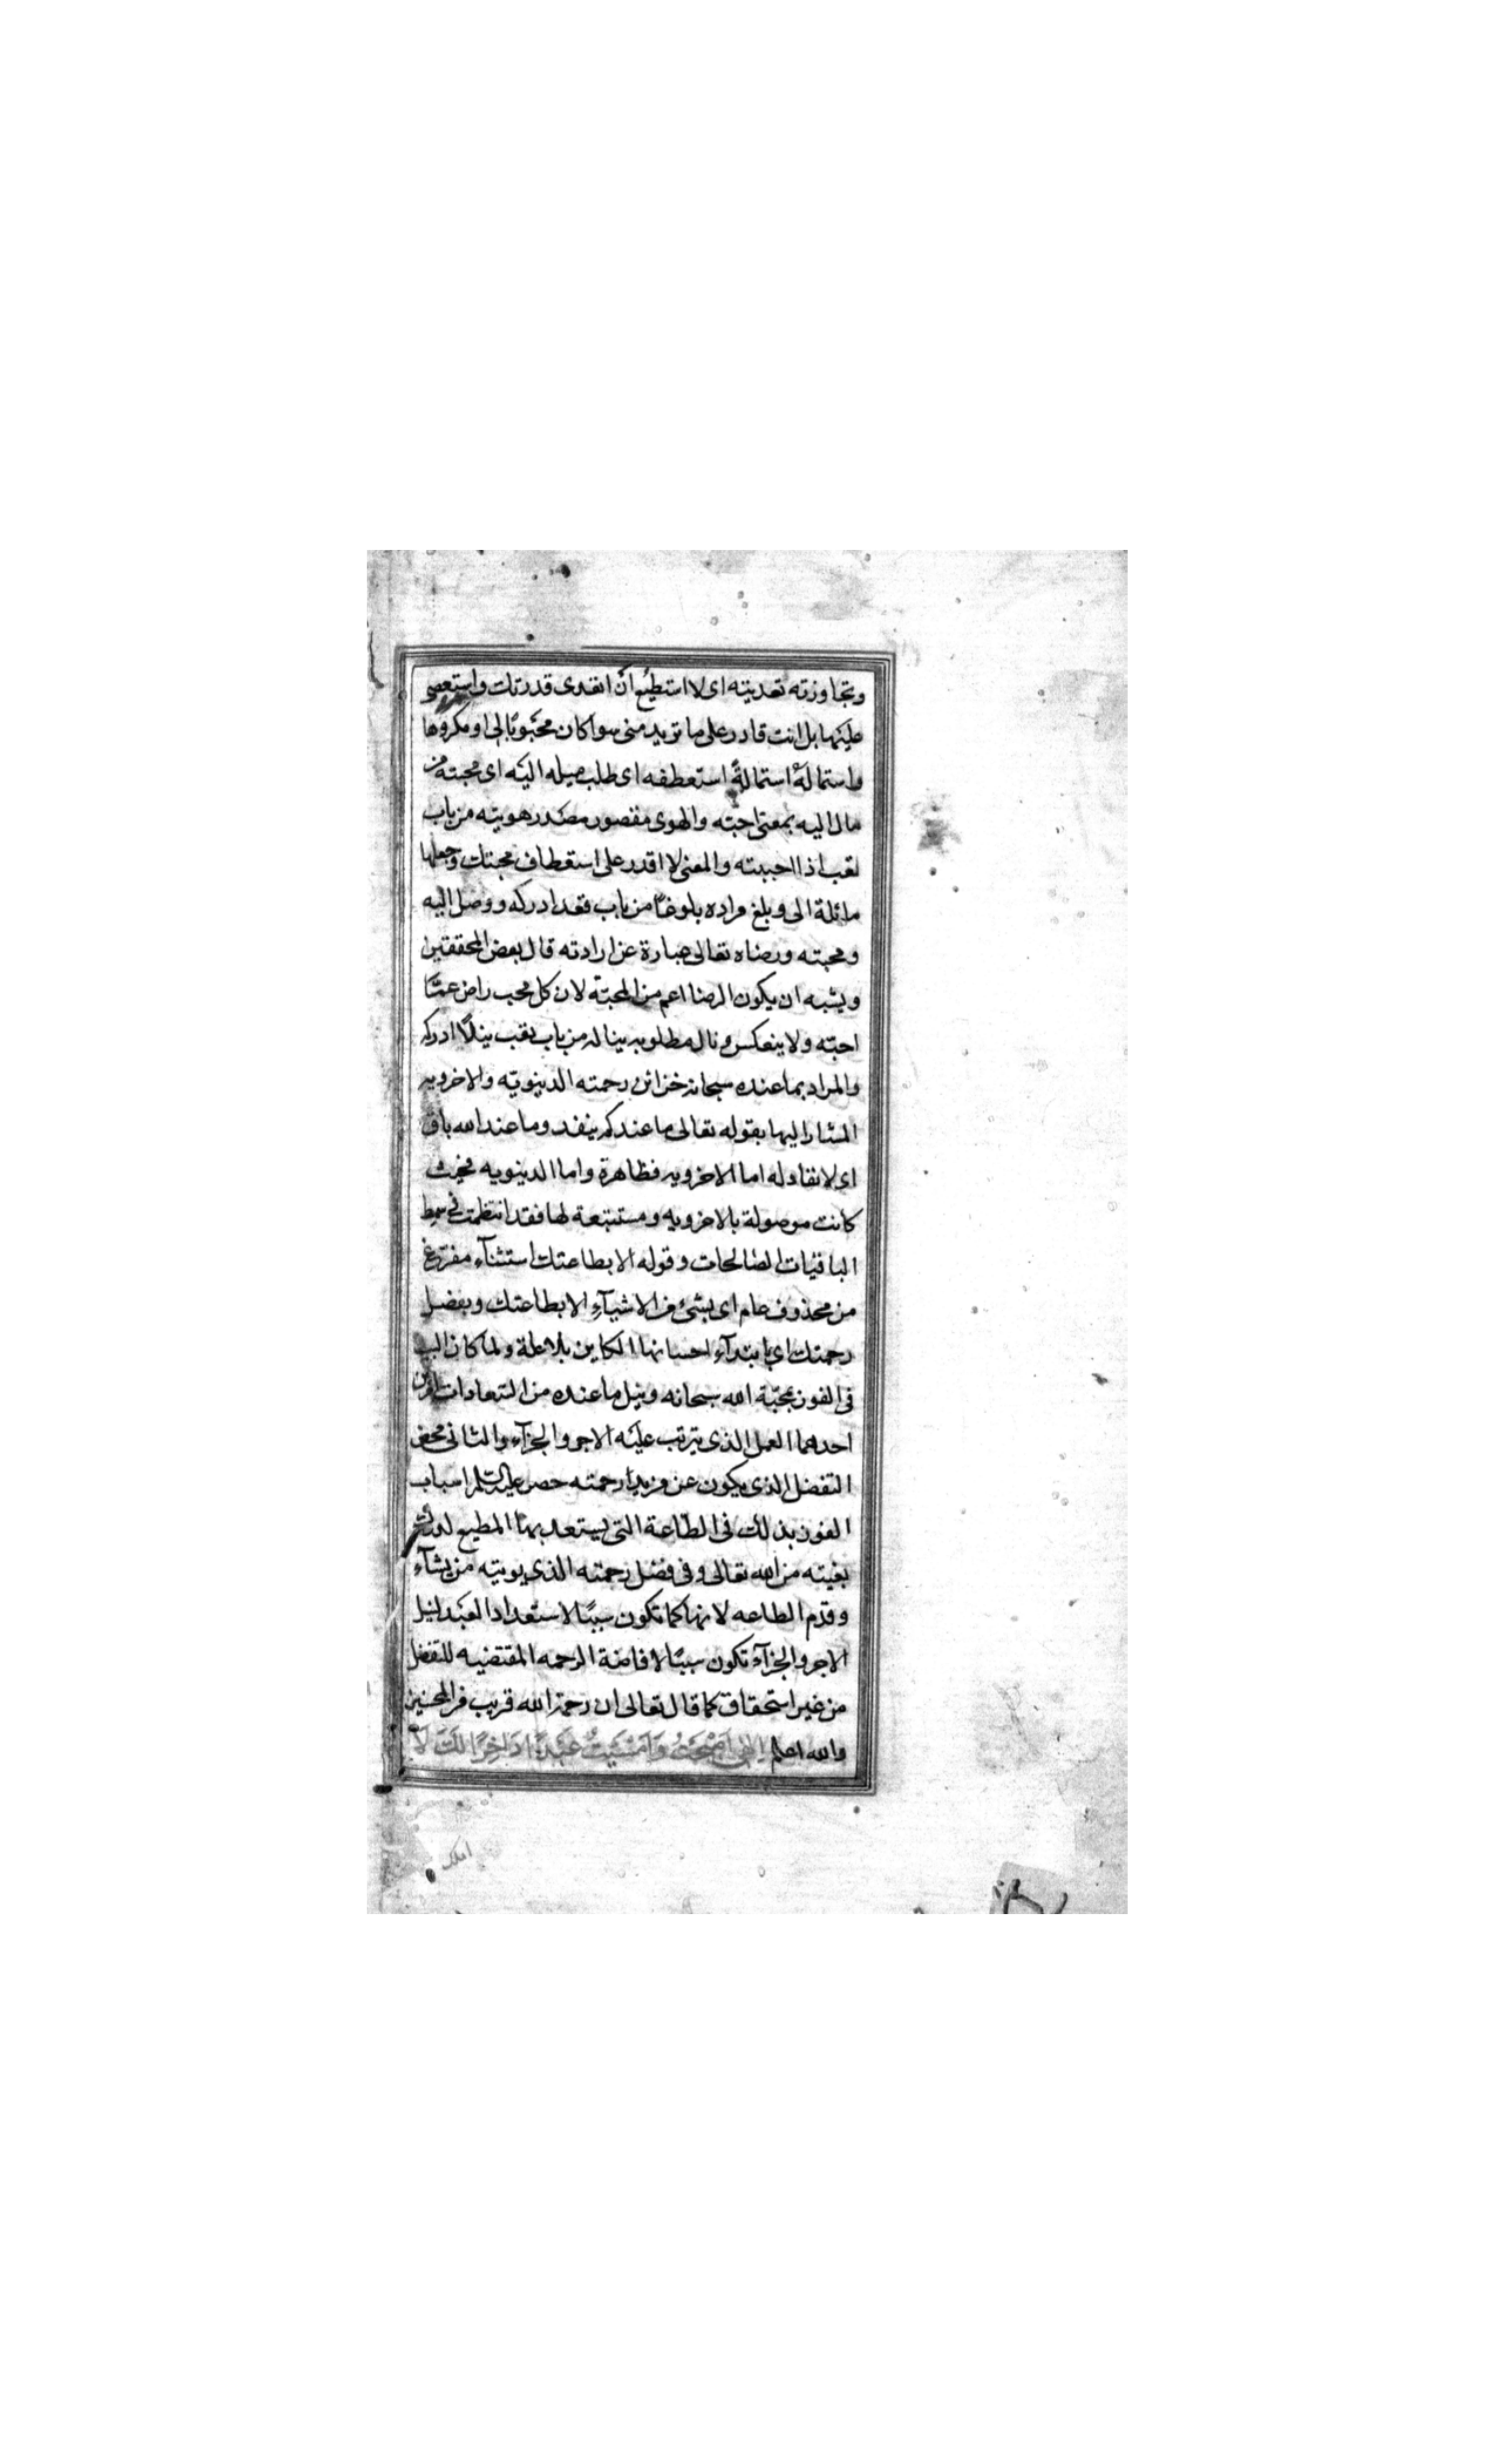 وتجاوزته تعديته اى لا استطيع ان اتعدى قدرتك واستعصى
عليها بل انت قادر على ما تريد منى سوا كان محبوبا الى او مكروها
واستماله استمالة استعطفه اى طلب ميله اليه اى محبته من
مال اليه بمعنى احبه والهوى مقصور مصدر هويته من باب
تعب اذا احببته والمعنى لا اقدر على استعطاف محبتك وجعلها
مائلة الى وبلغ مراده بلوغا من باب قعد ادركه ووصل اليه
ومحبته ورضاه تعالى عبارة عن ارادته قال بعض المحققين
ويشبه ان يكون الرضا اعم من المحبة لان كل محب راض عما
احبه ولا ينعكس ونال مطلوبه يناله من باب تعب نيلا ادركه
والمراد بما عنده سبحانه خزائن رحمته الدينويه والاخرويه
المشار اليها بقوله تعالى ما عندكم ينفد وما عند الله باق
اى لا نفاد له اما الاخرويه فظاهرة واما الدينويه فحيث
كانت موصولة بالاخرويه ومستتبعة لها فقد انتظمت فى سمط
الباقيات الصالحات وقوله الا بطاعتك استثنآء مفرغ
من محذوف عام اى بشئ من الاشيآء الا بطاعتك وبفضل
رحمتك اى بابتدآء احسانها الكاين بلا علة ولما كان السبب
فى الفوز بمحبة الله سبحانه ونيل ما عنده من السعادات امرين
احدهما العمل الذى يترتب عليه الاجر والجزآء والثانى محض
التفضل الذى يكون عن مزيد رحمته حصر عليه السلم اسباب
الفوز بذلك فى الطاعة التى يستعد بها المطيع لدرك
بغيته من الله تعالى وفى فضل رحمته الذى يوتيه من يشآء
وقدم الطاعه لانها كما تكون سببا لاستعداد العبد لنيل
الاجر والجزآء تكون سببا لافاضة الرحمه المقتضيه للتفضل
من غير استحقاق كما قال تعالى ان رحمة الله قريب من المحسنين
والله اعلم الهى اصبحت وامسيت عبدا داخرا لك لا
املك